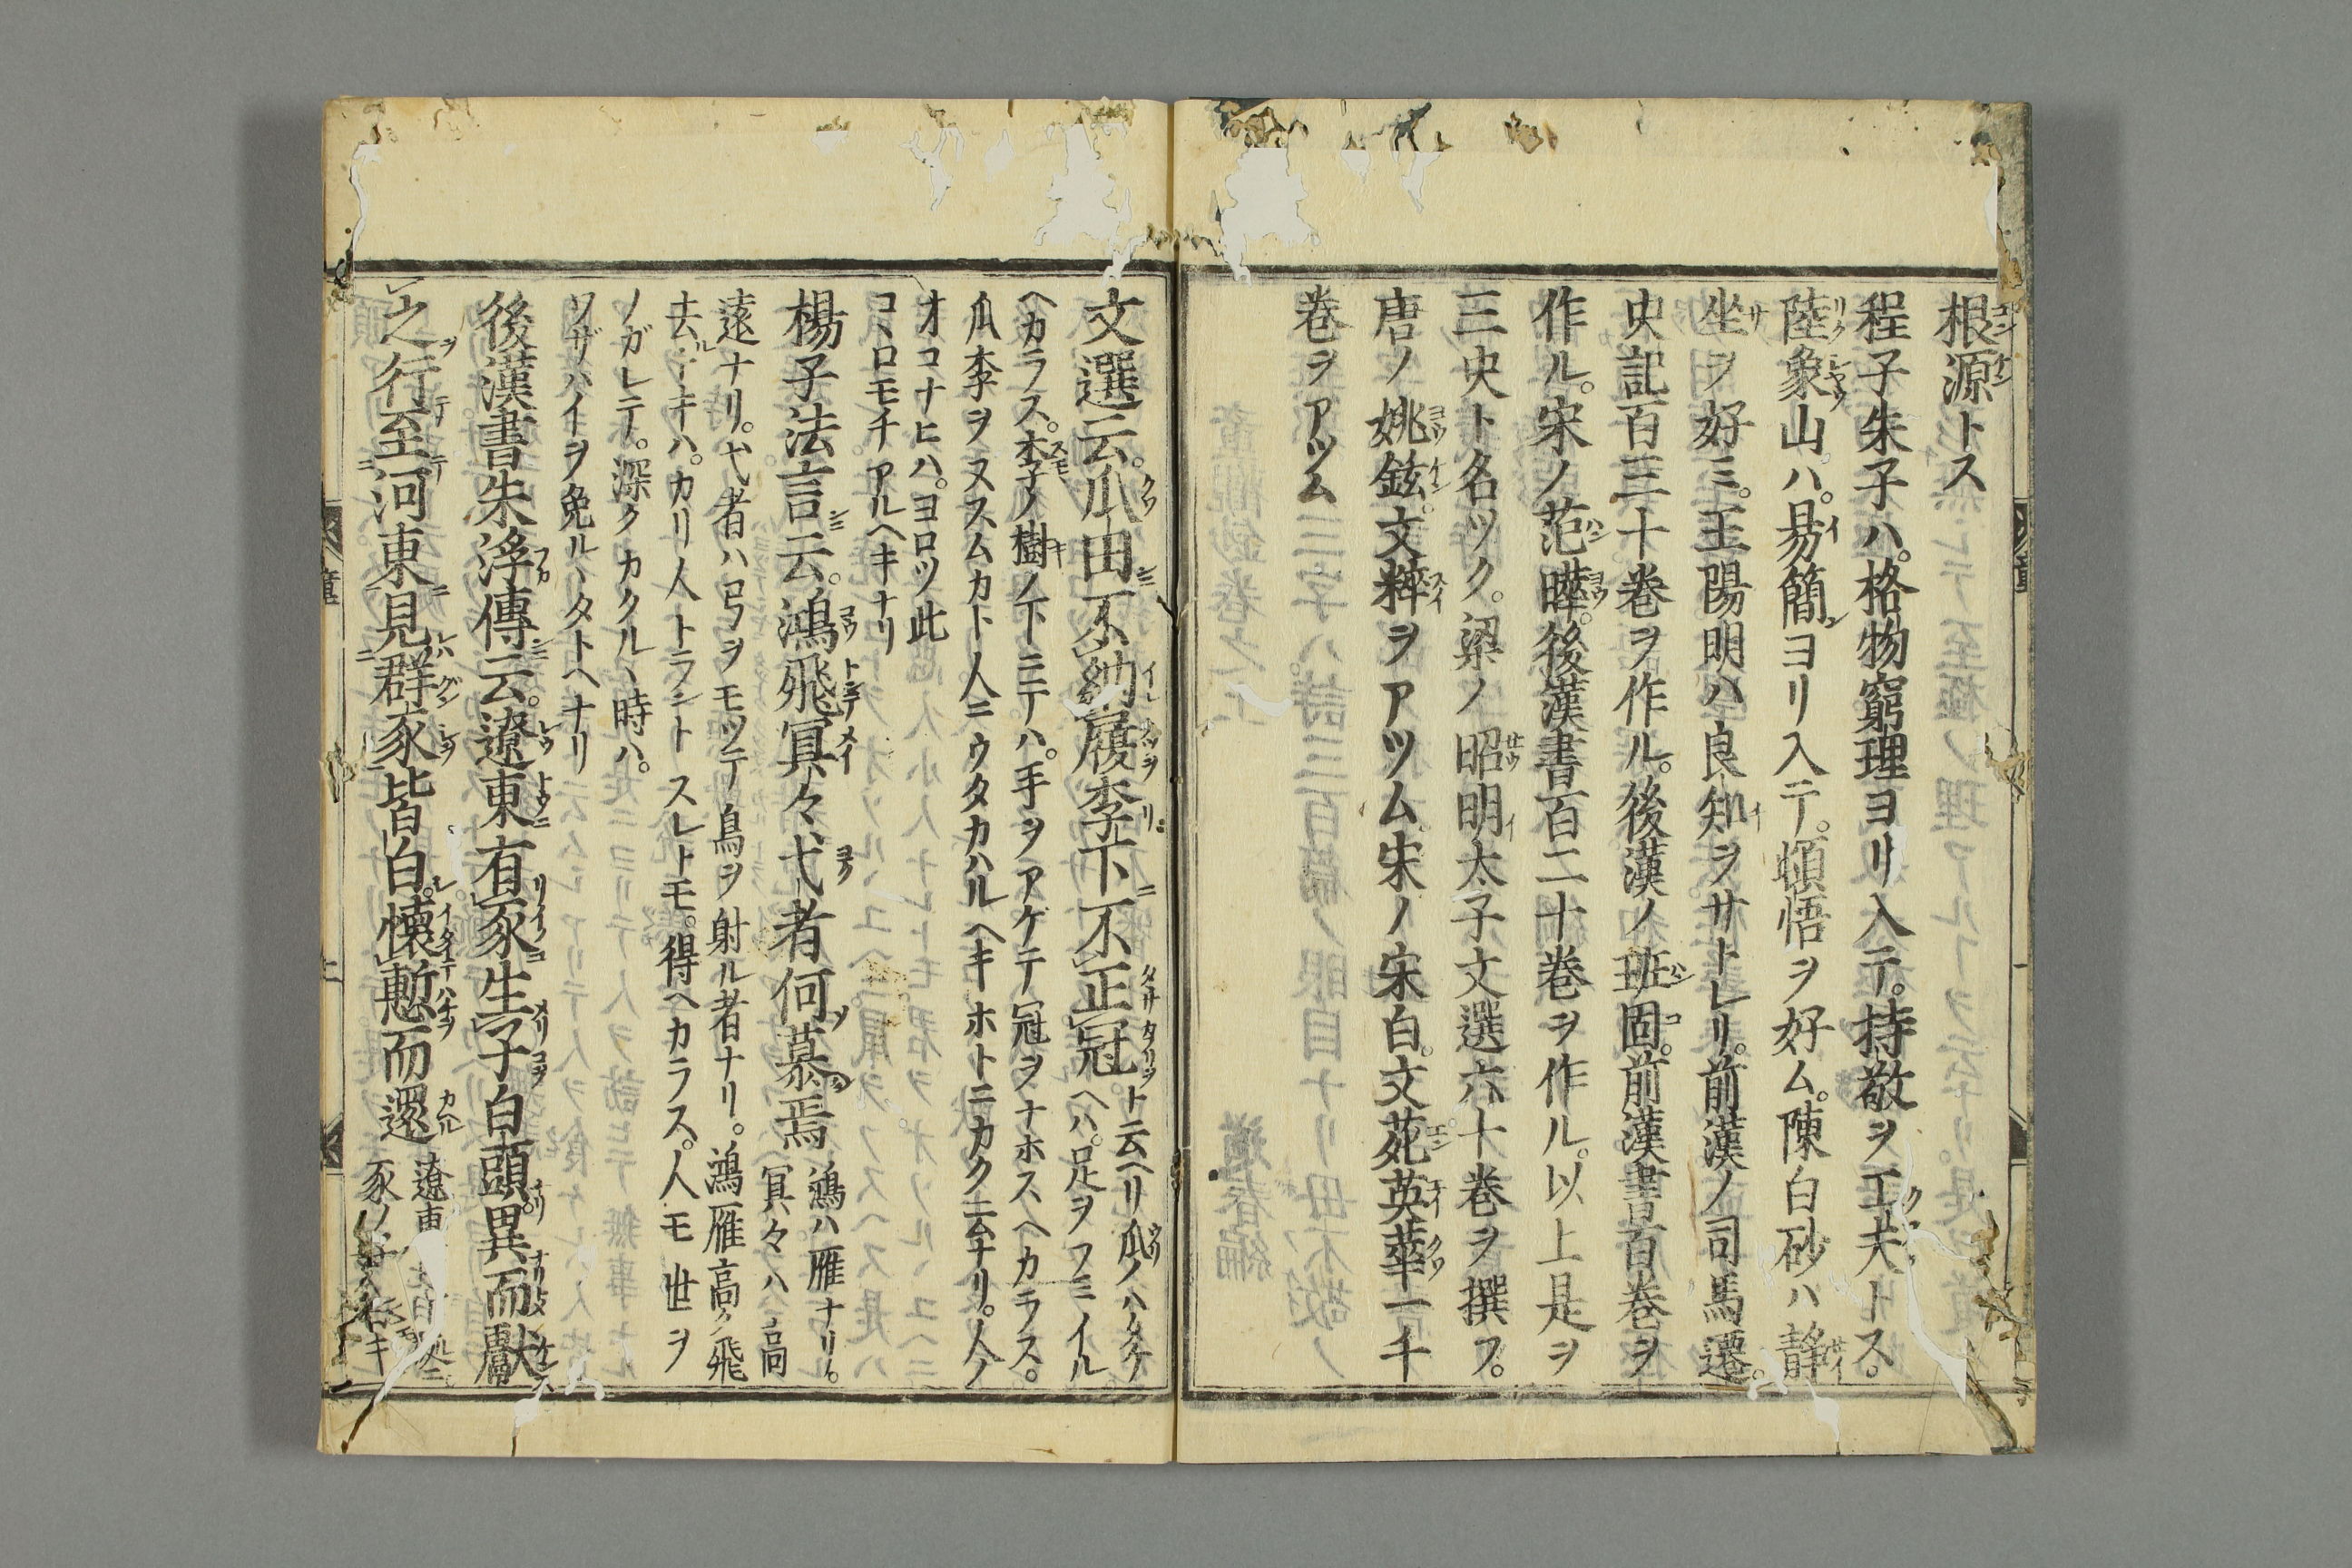 根源トス
程子朱子ハ。格物窮理ヨリ入テ。持敬ヲ工夫トス。
陸象山ハ。易簡ヨリ入テ。頓悟ヲ好ム。陳白砂ハ静
坐ヲ好ミ。王陽明ハ良知ヲサトレリ。前漢ノ司馬遷。
史記百三十巻ヲ作ル。後漢ノ班固。前漢書百巻ヲ
作ル。宋ノ范曄。後漢書百二十巻ヲ作ル。以上是ヲ
三史ト名ツク。梁ノ昭明太子文選六十巻ヲ撰フ。
唐ノ姚鉉。文粹ヲアツム。宋ノ宋白。文苑英華一千
巻ヲアツム
文選云。瓜田不納履李下不正冠ト云ヘリ瓜ノハタケ
ヘハ。足ヲフミイル
ヘカラス。李ノ樹ノ下ニテハ。手ヲアゲテ冠ヲナホスヘカラス。
瓜李ヲヌスムカト人ニウタカハルヘキホトニカク云ナリ。人ノ
オコナヒハ。ヨロツ此
コヽロモチアルヘキナリ
楊子法言云。鴻飛冥々弋者何慕焉 鴻ハ雁ナリ。
冥々ハ高
遠ナリ。弋者ハ弓ヲモツテ鳥ヲ射ル者ナリ。鴻雁高ク飛
去トキハ。カリ人トラントスレトモ。得ヘカラス。人モ世ヲ
ノガレテ。深クカクルヽ時ハ。
ワザハイヲ免ルヽタトヘナリ
後漢書朱浮傳云。遼東有豕生子白頭異而獻
之行至河東見群豕皆白。懷慙而還 遼東
豕ノ